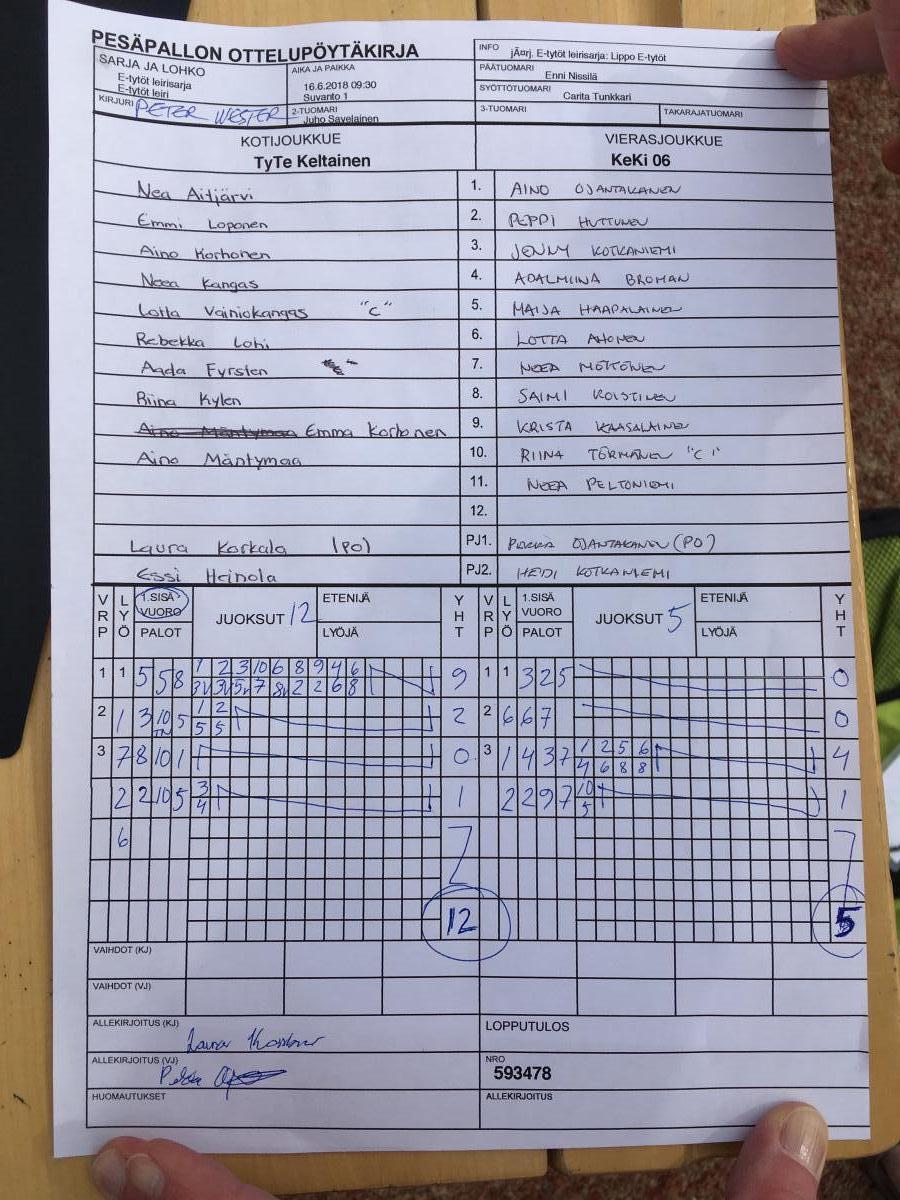 PESÄPALLON OTTELUPÖYTÄKIRJA
SARJA JA LOHKO
E-tytöt leirisarja
E-tytöt leiri
KIRJURI PETER WESTER
AIKA JA PAIKKA
16.6.2018 09:30
Suvanto 1
2-TUOMARI
Juho Savelainen
INFO jÃ¤rj. E-tytöt leirisarja: Lippo E-tytöt
PÄÄTUOMARI
Enni Nissilä
SYÖTTÖTUOMARI
Carita Tunkkari
3-TUOMARI TAKARAJATUOMARI
KOTIJOUKKUE VIERASJOUKKUE
TyTe Keltainen KeKi 06
Nea Aitjärvi 1. AINO OJANTAKANEN
Emmi Loponen 2. PEPPI HUTTUNEN
Aino Korhonen 3. JENNY KOTKANIEMI
Neea Kangas 4. ADALMIINA BROMAN
Lotta Vainiokangas "C" 5. MAIJA HAAPALAINEN
Rebekka Lohi 6. LOTTA AHONEN
Aada Fyrsten 7. NEEA MÖTTÖNEN
Riina Kylen 8. SAIMI KOISTINEN
Aino Mäntymaa Emma Korhonen 9. KRISTA KAASALAINEN
Aino Mäntymaa 10. RIINA TÖRMÄNEN "C"
11. NEEA PELTONIEMI
12.
Laura Korkala (PO) PJ1. OJANTAKANEN (PO)
Essi Heinola PJ2. HEIDI KOTKANIEMI
VRP LYÖ 1.SISÄ VUORO PALOT JUOKSUT 12 ETENIJÄ LYÖJÄ YHT VRP LYÖ 1.SISÄ VUORO PALOT JUOKSUT 5 ETENIJÄ LYÖJÄ YHT
1 1 5 5 8 1 2 3 10 6 8 9 4 6 9 1 1 3 2 5 0
3V 3V 5V 7 8V 2 2 6 8
2 1 3 10 5 1 2 2 2 6 6 7 0
5 5
3 7 8 10 1 0 3 1 4 3 7 1 2 5 6 4
4 6 8 8
2 2 10 5 3 1 2 2 9 7 10 1
4 5
6
12 5
VAIHDOT (KJ)
VAIHDOT (VJ)
ALLEKIRJOITUS (KJ) LOPPUTULOS
ALLEKIRJOITUS (VJ) NRO
593478
HUOMAUTUKSET ALLEKIRJOITUS